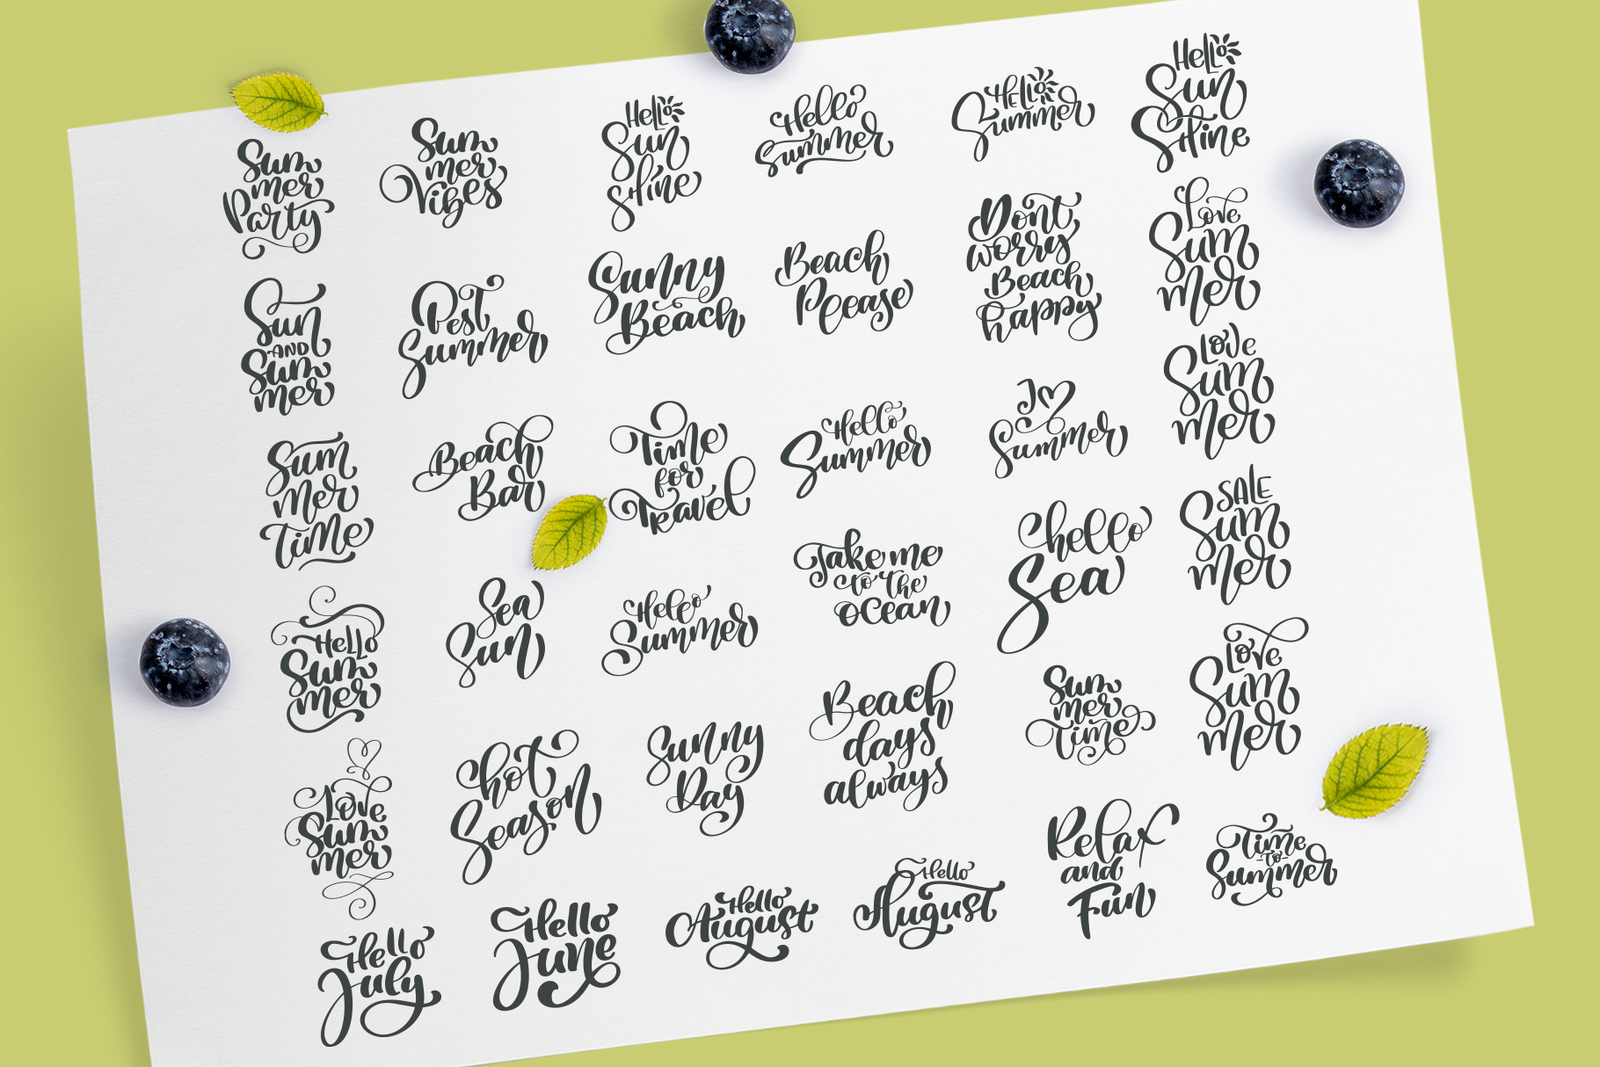 Sum
mer
Party
Sum
mer
Vibes
Hello
Sun
Shine
Hello
Summer
Hello
Summer
Hello
Sun
Shine
Sun
AND
Sum
mer
Best
Summer
Sunny
Beach
Beach
Please
Dont
worry
Beach
happy
Love
Sum
mer
Sum
mer
Time
Beach
Bar
Time
for
Travel
Hello
Summer
I
Summer
Love
Sum
mer
Hello
Sum
mer
Sea
Sun
Hello
Summer
Take me
to the
ocean
hello
Sea
SALE
Sum
mer
Love
Sum
mer
hot
Season
Sunny
Day
Beach
days
always
Sum
mer
Time
Love
Sum
mer
Hello
July
Hello
June
Hello
August
Hello
August
Relax
and
Fun
Time
to
Summer